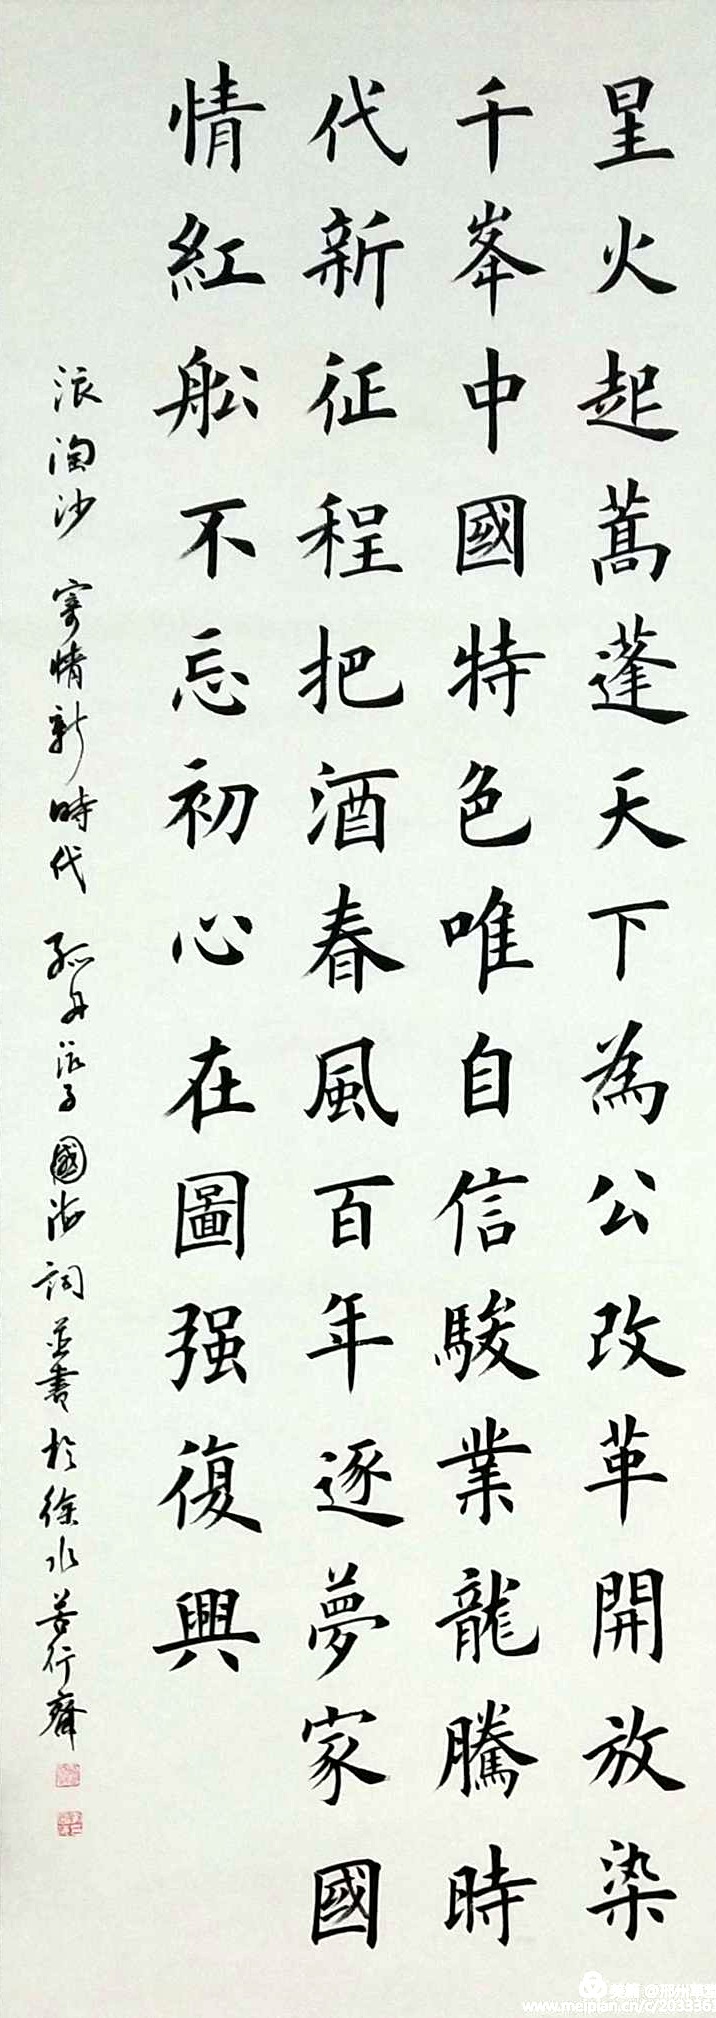 星火起蒿蓬天下為公改革開放染
千峯中國特色唯自信駿業龍騰時
代新征程把酒春風百年逐夢家國
情紅船不忘初心在圖强復興
浪淘沙 寄情新時代 孤舟浪子國海詞並書於徐水苦行齋
美篇 @邢州草
www.meipian.cn/c/2033361